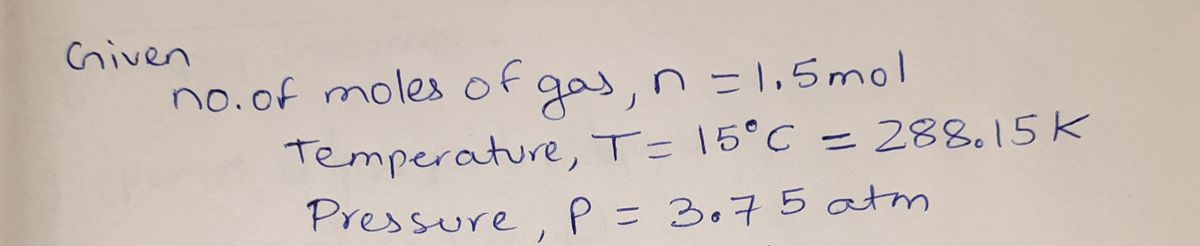 Given
no. of moles of gas, n = 1.5 mol
Temperature, T = 15°C = 288.15 K
Pressure, P = 3.75 atm